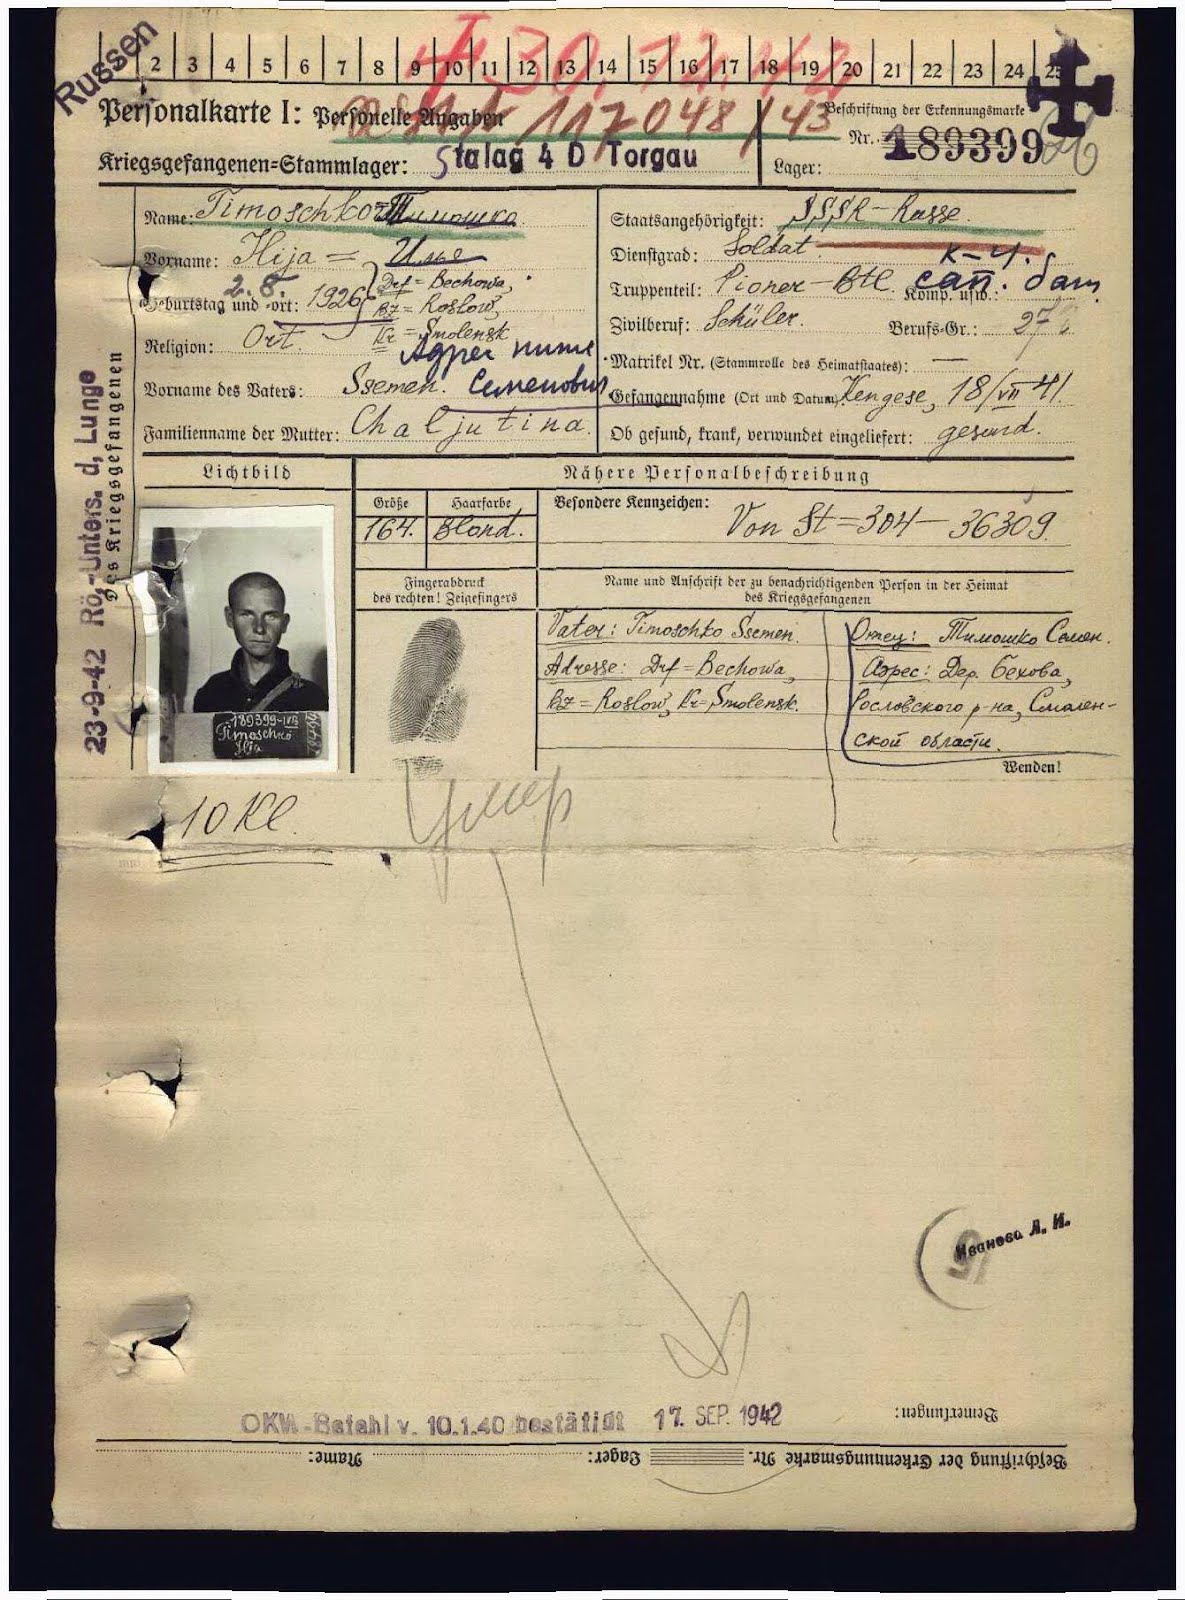 Russen
2 3 4 5 6 7 8 9 10 11 12 13 14 15 16 17 18 19 20 21 22 23 24 25
† 30.12.42
Personalkarte I: Personelle Angaben
117048/43
Beschriftung der Erkennungsmarke
Nr. 189399
Kriegsgefangenen=Stammlager: Stalag 4 D Torgau
Lager:
Name: Timoschko = Тимошко
Vorname: Ilja = Илье
Geburtstag und -ort: 2.8. 1926 Drf = Bechowa,
Bz = Roslow,
Kr = Smolensk
Religion: Ort.
Адрес
Vorname des Vaters: Ssemen. Семенович
Familienname der Mutter: Chaljutina.
Staatsangehörigkeit: SSSR - Russe.
Dienstgrad: Soldat. К-ч.
Truppenteil: Pioner - Btl. Komp. usw.: сап. бат.
Zivilberuf: Schüler. Berufs-Gr.: 27
Matrikel Nr. (Stammrolle des Heimatstaates): —
Gefangennahme (Ort und Datum): Kengese, 18/VII 41.
Ob gesund, krank, verwundet eingeliefert: gesund.
Des Kriegsgefangenen
23-9-42 Rö.-Unters. d, Lunge
Lichtbild
Nähere Personalbeschreibung
Größe
164.
Haarfarbe
Blond.
Besondere Kennzeichen:
Von St = 304 - 36309.
Fingerabdruck
des rechten! Zeigefingers
Name und Anschrift der zu benachrichtigenden Person in der Heimat
des Kriegsgefangenen
Vater: Timoschko Ssemen.
Adresse: Drf = Bechowa,
Bz = Roslow, Kr = Smolensk.
Отец: Тимошко Семен.
Адрес: Дер. Бехова,
Рословского р-на, Смолен-
ской области.
189399-IVD
Timoschko
Ilja
Wenden!
10 Kl.
Умер
Иванова А. И.
OKW-Befehl v. 10.1.40 bestätigt 17. SEP. 1942
Bemerkungen:
Name:
Lager:
Beschriftung der Erkennungsmarke Nr.